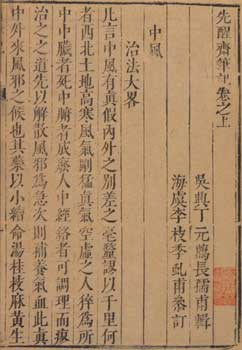 先醒齋筆記卷之上
吳興丁元薦長孺甫輯
海虞李枝季虬甫參訂
中風
治法大畧
凡言中風有真假內外之別差之毫釐謬以千里何
者西北土地高寒風氣剛猛真氣空虛之人猝為所
中中臟者死中腑者成廢人中經絡者可調理而瘳
治之之道先以解散風邪為急次則補養氣血此真
中外來風邪之候也其藥以小續命湯桂枝麻黃生